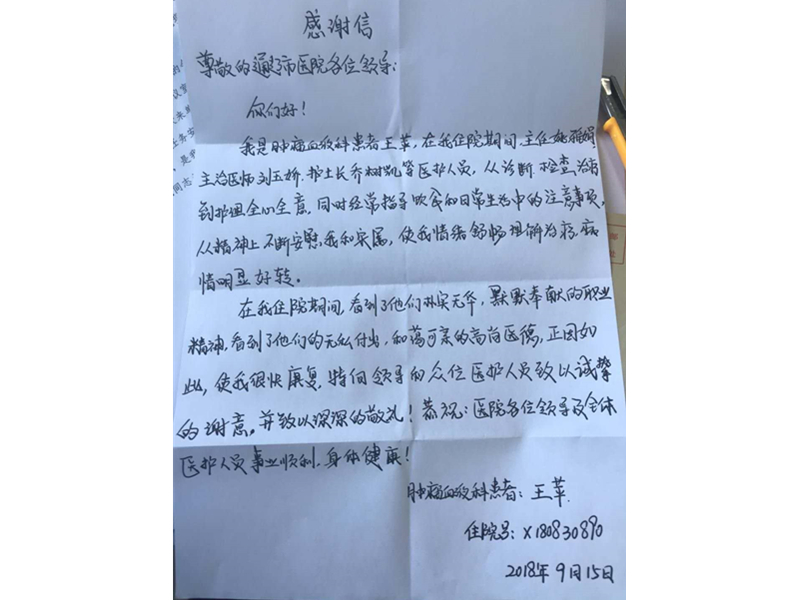 感谢信
尊敬的通辽市医院各位领导:
你们好!
我是肿瘤血液科患者王苹,在我住院期间.主任姚雅娟
主治医师刘玉娇.护士长乔树凯等医护人员,从诊断.检查.治疗
到护理全心全意,同时经常指导饮食和日常生活中的注意事项,
从精神上不断安慰我和家属,使我情绪舒畅理解治病.病
情明显好转。
在我住院期间,看到了他们朴实无华,默默奉献的职业
精神,看到了他们的无私付出,和蔼可亲的高尚医德,正因如
此,使我很快康复.特向领导向众位医护人员致以诚挚
的谢意。并致以深深的敬礼!恭祝:医院各位领导及全体
医护人员事业顺利.身体健康!
肿瘤血液科患者:王苹.
住院号:X180830890
2018年9月15日